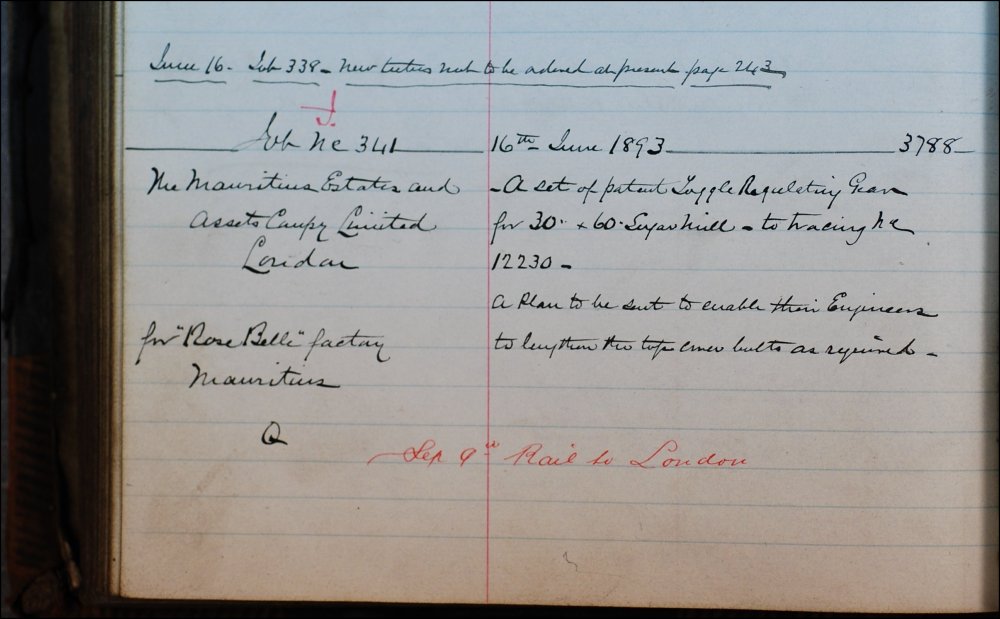 June 16 - Job 338 - New tubes not to be ordered at present page 243
Job No 341 16th June 1893 3788
The Mauritius Estates and
Assets Compy Limited
London
for "Rose Belle" factory
Mauritius
Q
- A set of patent Toggle Regulating Gear
for 30" x 60" Sugar Mill - to tracing No
12230 -
A Plan to be sent to enable their Engineers
to lengthen the top cover bolts as required -
Sep 9th Rail to London